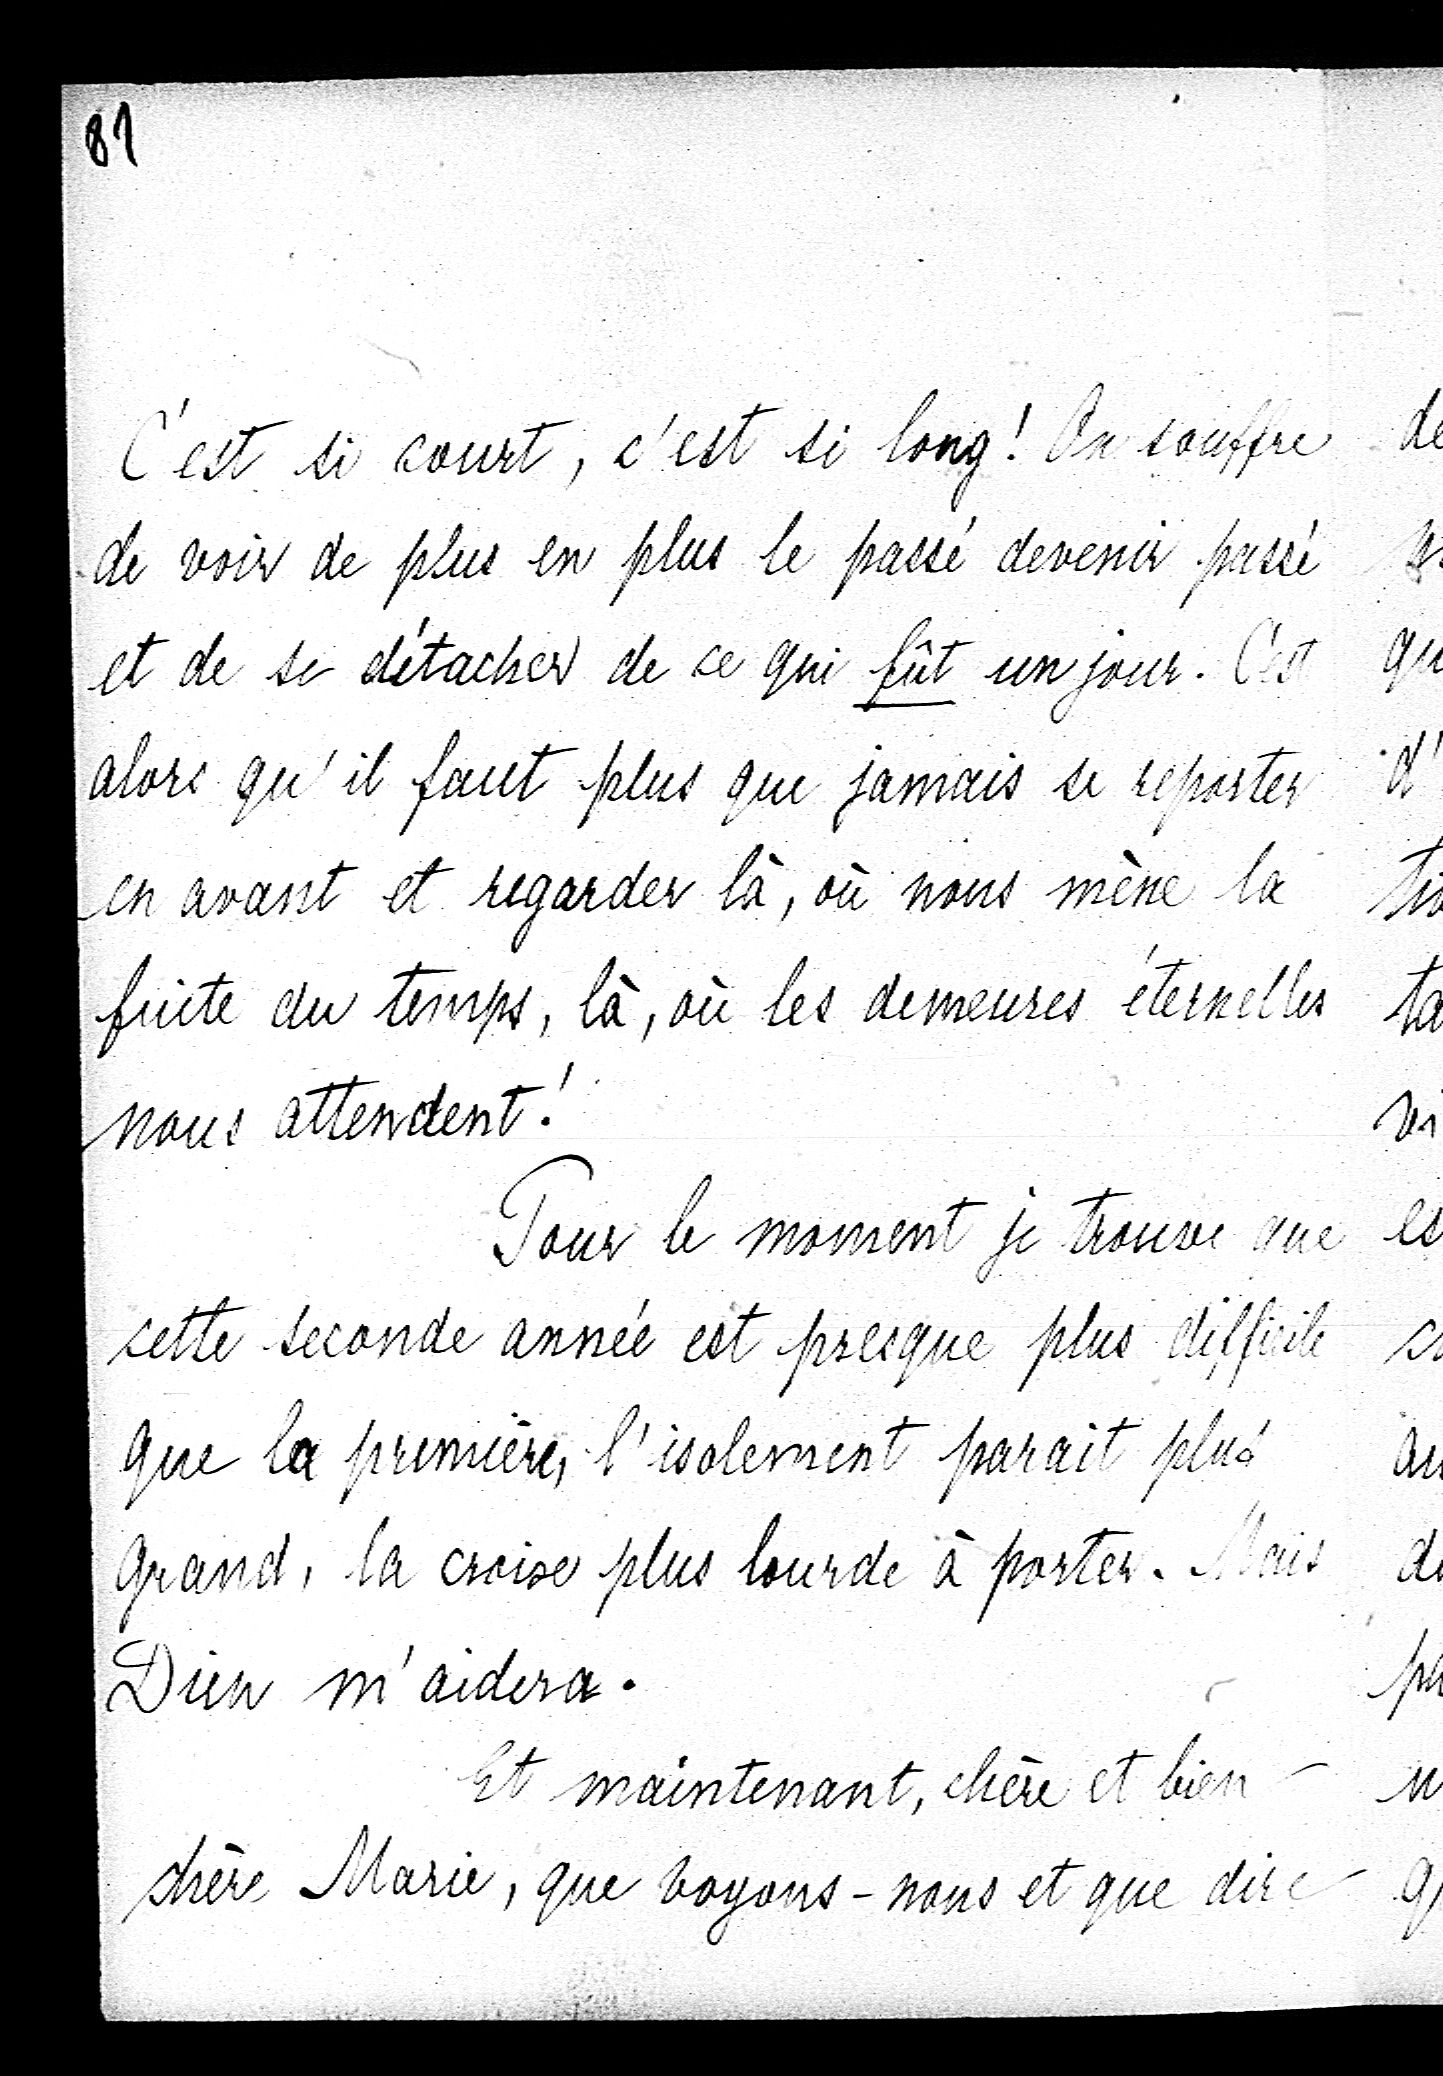 81
C'est si court, c'est si long! On souffre
de voir de plus en plus le passé devenir passé
et de se détacher de ce qui fût un jour. C'est
alors qu'il faut plus que jamais se reporter
en avant et regarder là, où nous mène la
fuite du temps, là, où les demeures éternelles
nous attendent!
Pour le moment je trouve que
cette seconde année est presque plus difficile
que la première, l'isolement parait plus
grand, la croix plus lourde à porter. Mais
Dieu m'aidera.
Et maintenant, chère et bien
chère Marie, que voyons-nous et que dire